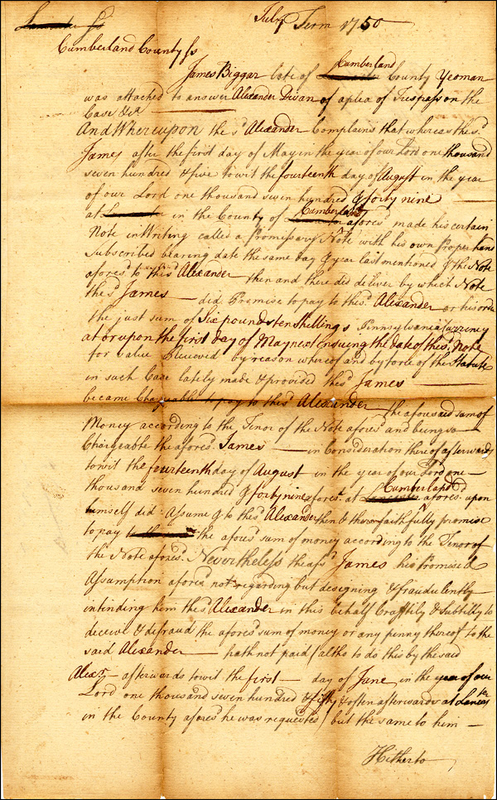 July Term 1750
Cumberland County ss
Cumberland
James Biggar late of County Yeoman
was attached to answer Alexander of a plea of Trespass on the
Case &c.
And Whereupon the sd. Alexander Complains that whereas the sd.
James after the first day of May in the year of our Lord one thousand
seven hundred & five to wit the fourteenth day of August in the year
of our Lord one thousand seven hundred & forty nine
at in the County of Cumberland afores. made his certain
Note in Writing called a Promissory Note with his own proper hand
Subscribed bearing date the same day & year last mentioned & the Note
afores. to the sd. Alexander then and there did deliver by which Note
the sd. James did Promise to pay to the sd. Alexander or his order
the just sum of Six pounds ten Shillings Pennsylvania Currency
at or upon the first day of May next ensuing the date of this Note
for Value Received by reason whereof and by force of the Statute
in such Case lately made & provided the sd. James
became Chargeable to pay to the sd. Alexander the aforesaid sum of
Money according to the Tenor of the Note afores. and being so
Chargeable the afored. James in Consideration thereof afterwards
to wit the fourteenth day of August in the year of our Lord one
Cumberland
thousand seven hundred & forty nine afores. at afores. upon
himself did Assume & to the sd. Alexander then & there faithfully promise
to pay the afores. sum of money according to the Tenor of
the Note afores. Nevertheless the afs. James his promise &
Assumption afores. not regarding but designing & fraudulently
intending him the sd. Alexander in this behalf Craftily & subtilly to
deceive & defraud the afored. sum of money or any penny thereof to the
said Alexander hath not paid (altho to do this by the said
Alexr. afterwards to wit the first day of June in the year of our
Lord one thousand seven hundred & fifty & often afterwards at
in the County afores. he was requested) but the same to him
Hitherto